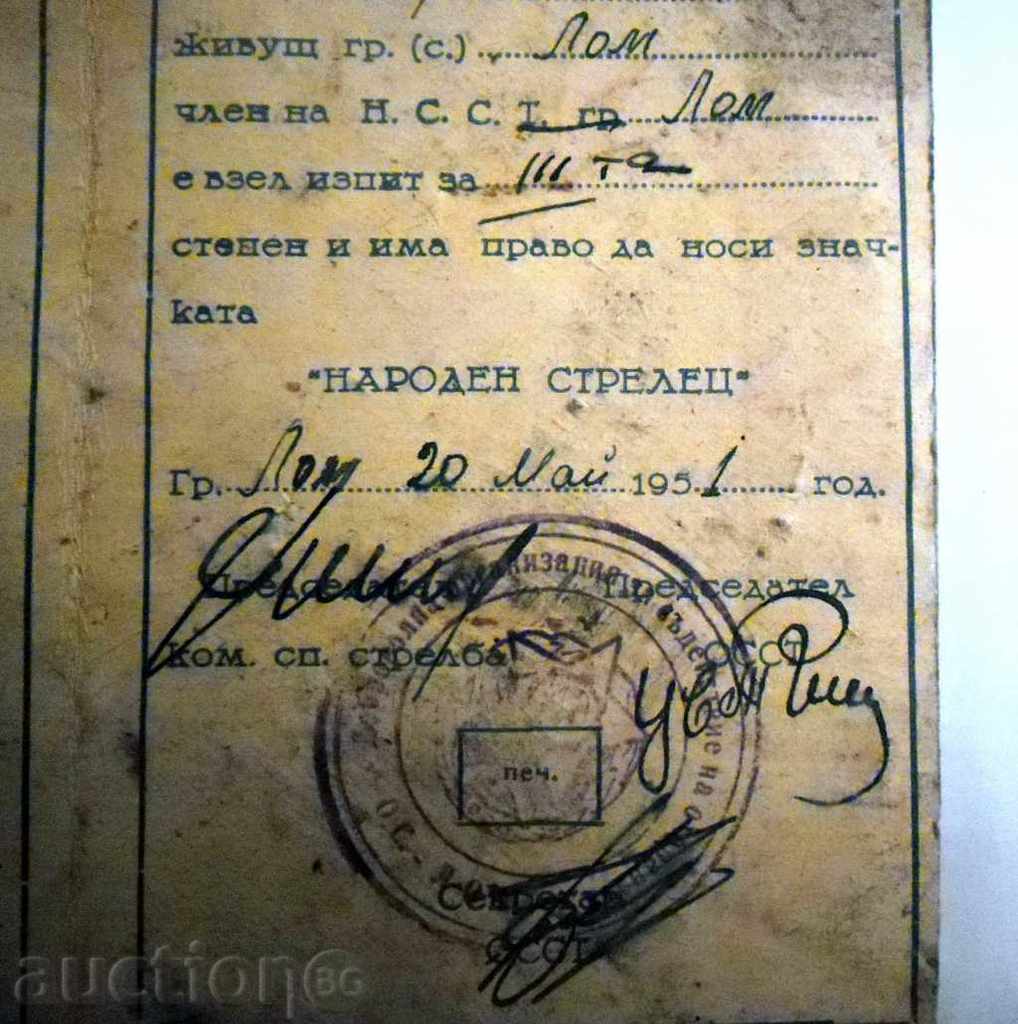 живущ гр. (с.) Лом
член на Н. С. С. Т. гр. Лом
е взел изпит за III та
степен и има право да носи знач-
ката
"НАРОДЕН СТРЕЛЕЦ"
Гр. Лом 20 Май 1951 год.
Председател Председател
Ком. сп. стрелба ОССТ
печ.
Секретар
ОССТ
auction BG